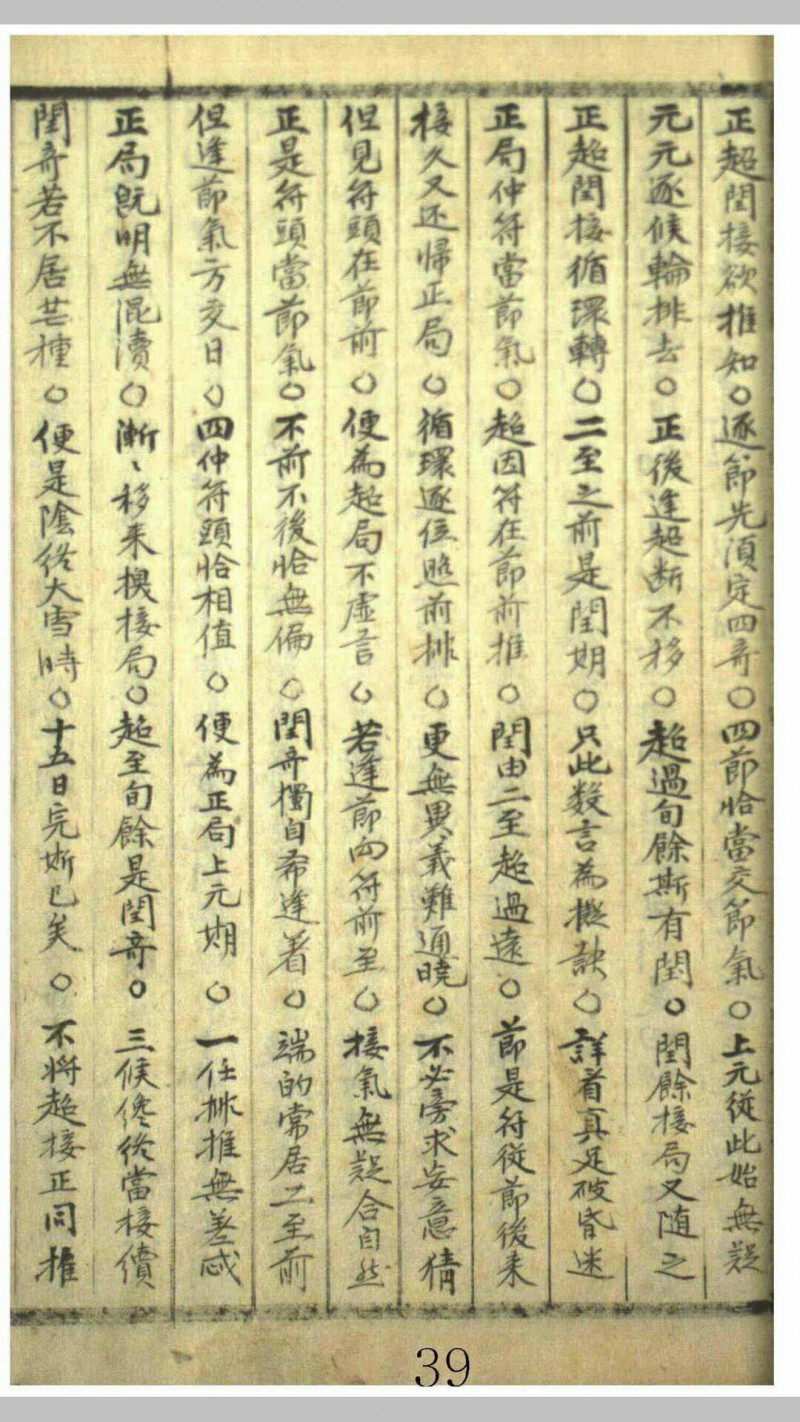 正超閏接欲推知○逐節先須定四奇○四節恰當交節氣○上元従此始無疑
元元逐候輪排去○正後逢超断不移○超過旬餘斯有閏○閏餘接局又随之
正超閏接循環轉○二至之前是閏期○只此数言為撚訣○詳看真足破昏迷
正局仲符當節氣○超因符在節前推○閏由二至超過遠○節是符従節後来
接久又还歸正局○循環逐位照前排○更無異義難通曉○不必旁求妄意猜
但見符頭在節前○便為超局不虚言○若逢節向符前至○接氣無疑合自然
正是符頭當節氣○不前不後恰無偏○閏奇獨自希逢着○端的常居二至前
但逢節氣方交日○四仲符頭恰相值○便為正局上元期○一任排推無差忒
正局既明無混瀆○漸〻移来換接局○超至旬餘是閏奇○三候終當接續
閏奇若不居芒種○便是陰終大雪時○十五日完斯已矣○不将超接正同推
39